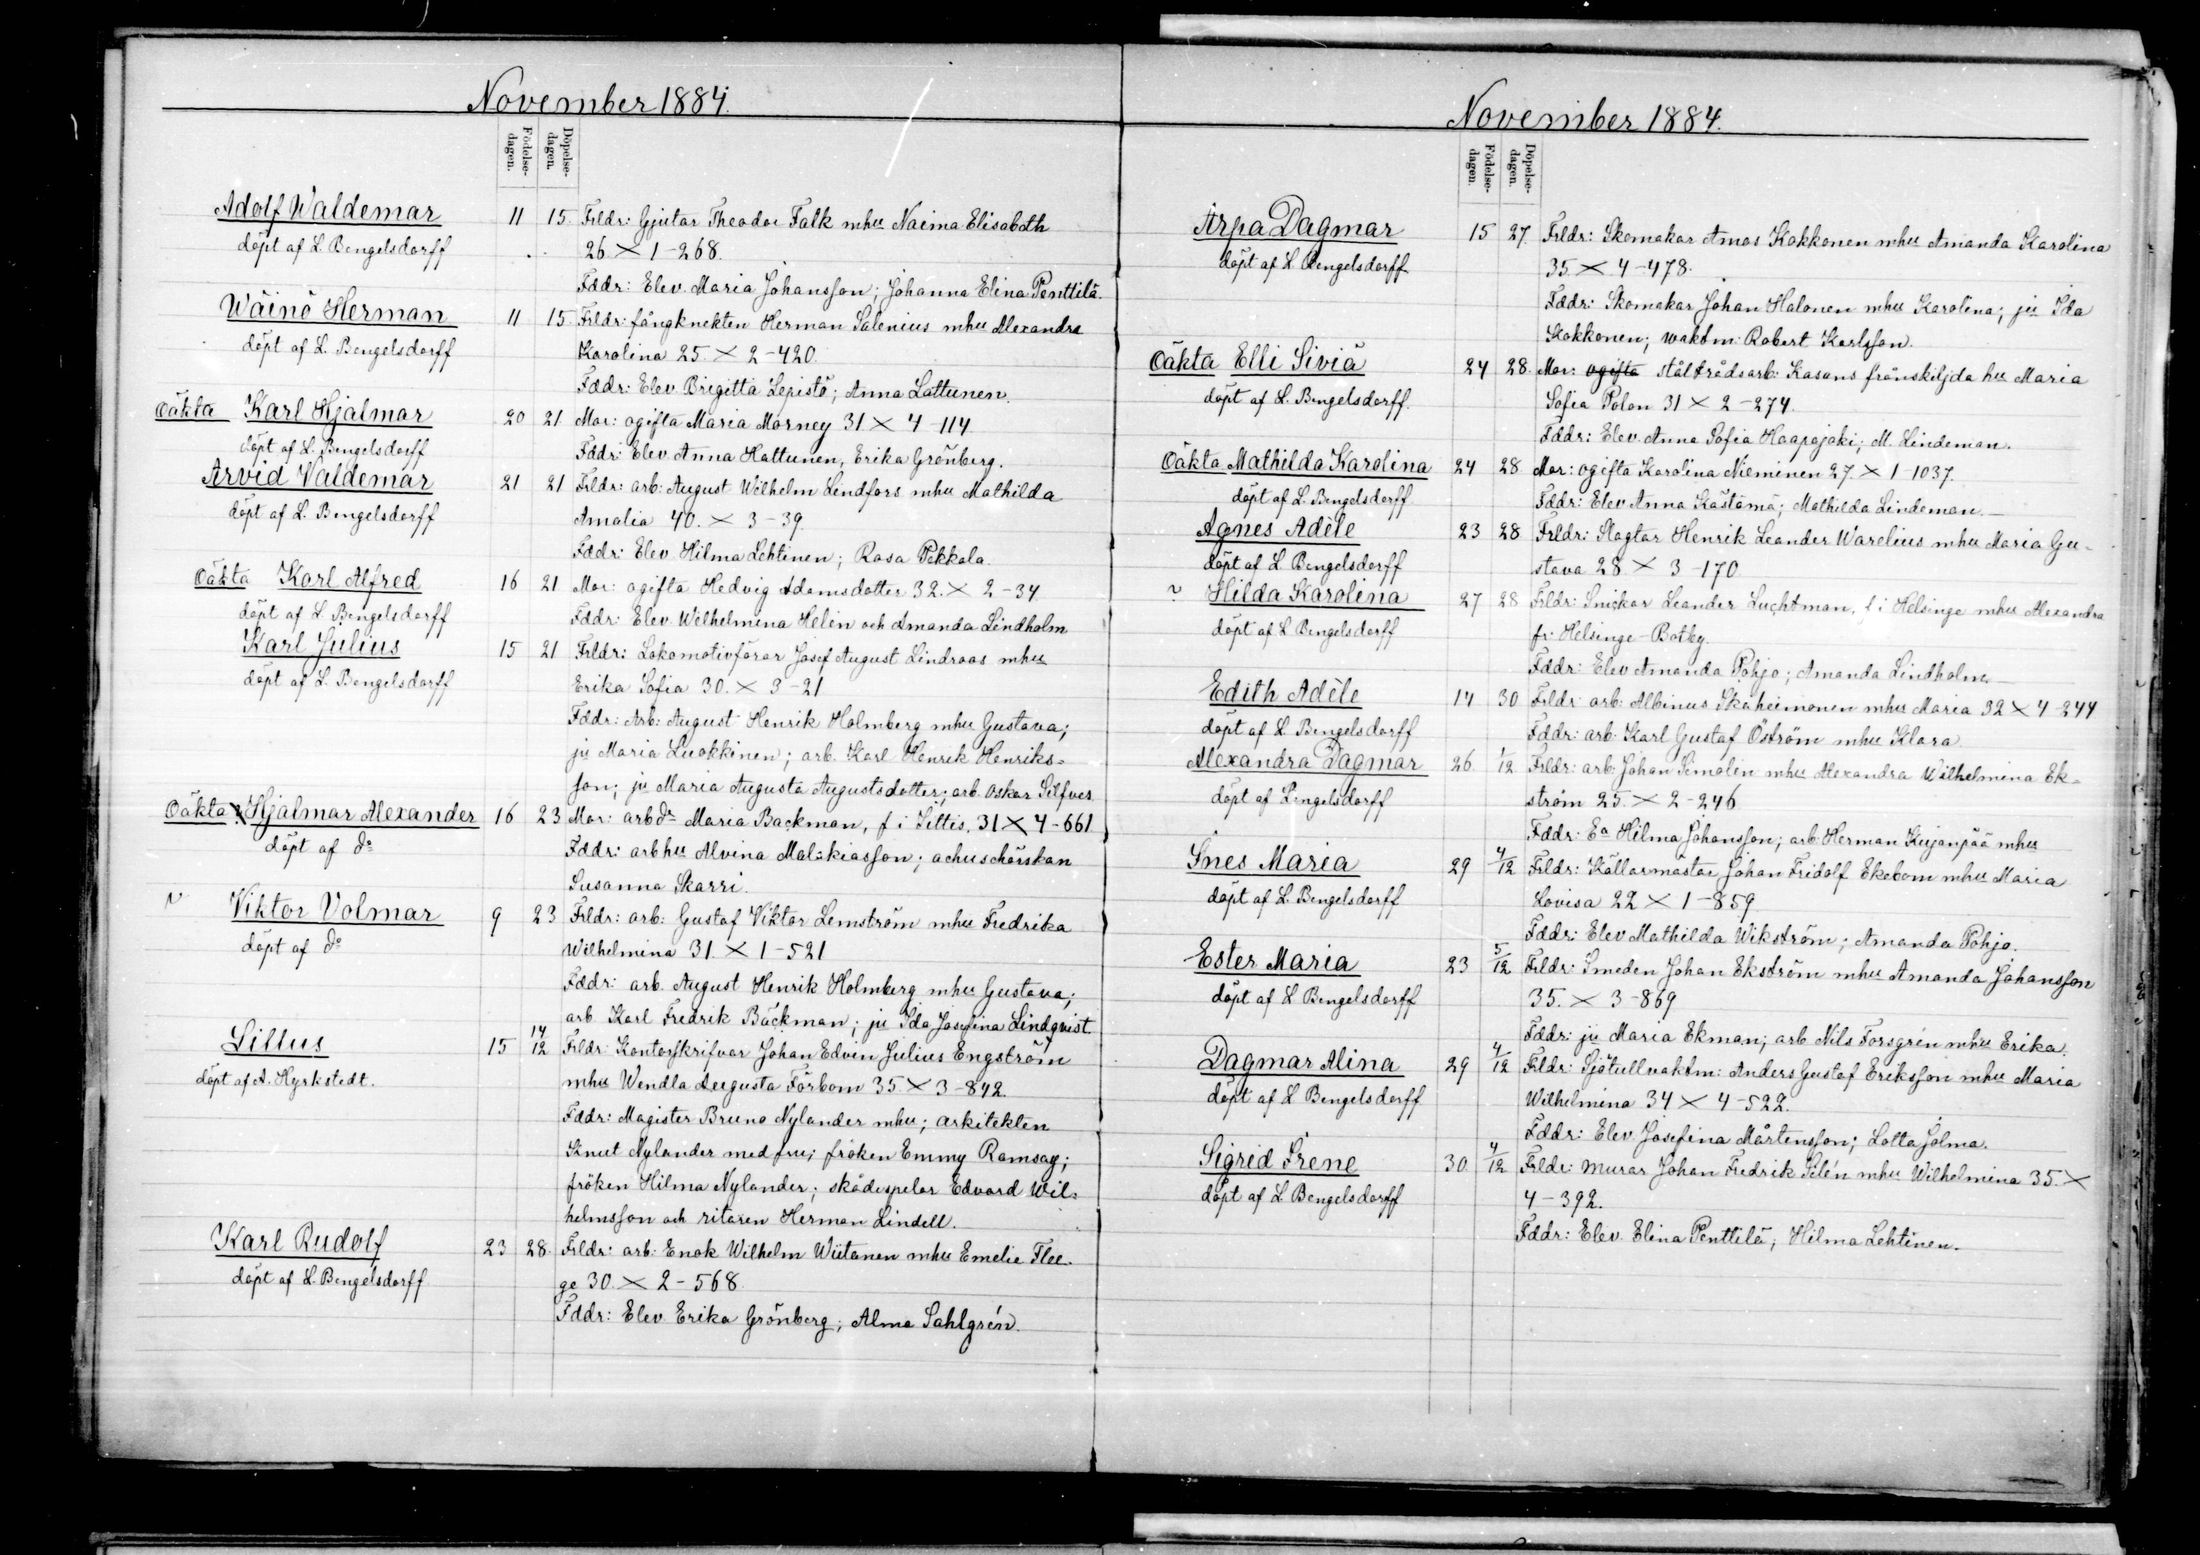 November 1884.
Födelse-
dagen.
Döpelse-
dagen.
Adolf Waldemar 11 15. Frldr: Gjutar Theodor Falk mhu Naima Elisabeth
döpt af L Bengelsdorff 26 × 1-268.
Fddr: Elev. Maria Johansson; Johanna Elina Penttilä.
Wäinö Herman 11 15. Frldr: fångknekten Herman Salenius mhu Alexandra
döpt af L. Bengelsdorff Karolina 25. × 2-420.
Fddr: Elev Brigitta Lepistö; Anna Lattunen.
Oäkta Karl Hjalmar 20 21 Mor: ogifta Maria Morney 31 × 4-114
döpt af L. Bengelsdorff Fddr: Elev Anna Hattunen, Erika Grönberg.
Arvid Valdemar 21 21 Frldr: arb: August Wilhelm Lindfors mhu Mathilda
döpt af L. Bengelsdorff Amalia 40. × 3-39
Fddr: Elev Hilma Lehtinen; Rosa Pekkala.
Oäkta Karl Alfred 16 21 Mor: ogifta Hedvig Adamsdotter 32. × 2-34
döpt af L. Bengelsdorff Fddr: Elev Wilhelmina Helèn och Amanda Lindholm
Karl Julius 15 21 Frldr: Lokomotivförar Josef August Lindroos mhu
döpt af L. Bengelsdorff Erika Sofia 30. × 3-21
Fddr: Arb: August Henrik Holmberg mhu Gustava;
ju Maria Luokkinen; arb. Karl Henrik Henriks-
son; ju Maria Augusta Augustsdotter; arb. Oskar Silfver
Oäkta Hjalmar Alexander 16 23 Mor: arbdr Maria Backman, f i Sittis, 31 × 4-661
döpt af do Fddr: arbhu Alvina Malakiasson; achuschörskan
Susanna Skarri.
v Viktor Volmar 9 23 Frldr: arb: Gustaf Viktor Lemström mhu Fredrika
döpt af do Wilhelmina 31. × 1-521
Fddr: arb. August Henrik Holmberg mhu Gustava;
arb Karl Fredrik Bäckman; ju Ida Josefina Lindqvist.
Lillus 15 14/12 Frldr: Kontorskrifvar Johan Edvin Julius Engström
döpt af A. Hyrkstedt. mhu Wendla Augusta Förbom 35 × 3-842.
Fddr: Magister Bruno Nylander mhu; arkitekten
Knut Nylander med fru; fröken Emmy Ramsay;
fröken Hilma Nylander; skådespelar Edvard Wil-
helmsson och ritaren Herman Lindell.
Karl Rudolf 23 28. Frldr: arb: Enok Wilhelm Wiitanen mhu Emelie Flee-
döpt af L. Bengelsdorff ge 30. × 2-568.
Fddr: Elev Erika Grönberg; Alma Sahlgrén.
November 1884.
Födelse-
dagen.
Döpelse-
dagen.
Arpa Dagmar 15 27. Frldr: Skomakar Amos Kokkonen mhu Amanda Karolina
döpt af L Bengelsdorff. 35 × 4-478.
Fddr: Skomakar Johan Halonen mhu Karolina; ju Ida
Kokkonen; waktm: Robert Karlsson.
Oäkta Elli Siviä 24 28. Mor: ogifta ståltrådsarb: Kasans frånskiljda hu Maria
döpt af L. Bengelsdorff. Sofia Polon 31 × 2-274.
Fddr: Elev. Anna Sofia Haapajoki; M. Lindeman.
Oäkta Mathilda Karolina 24 28 Mor: ogifta Karolina Nieminen 27. × 1-1037.
döpt af L. Bengelsdorff Fddr: Elev Anna Kästämä; Mathilda Lindeman.
Agnes Adèle 23 28 Frldr: Slagtar Henrik Leander Warelius mhu Maria Gu-
döpt af L Bengelsdorff stava 28 × 3-170
v Hilda Karolina 27 28 Frldr: Snickar Leander Luchtman, f i Helsinge mhu Alexandra
döpt af L Bengelsdorff fr. Helsinge-Botby.
Fddr: Elev Amanda Pohjo; Amanda Lindholm
Edith Adèle 14 30 Frldr: arb: Albinus Ikäheimonen mhu Maria 32 × 4-244
döpt af L Bengelsdorff Fddr: arb. Karl Gustaf Öström mhu Klara
Alexandra Dagmar 26. 1/12 Frldr: arb: Johan Simolin mhu Alexandra Wilhelmina Ek-
döpt af Bengelsdorff ström 25. × 2-246
Fddr: Ea Hilma Johansson; arb: Herman Kujanpää mhu
Ines Maria 29 4/12 Frldr: Källarmästar Johan Fridolf Ekebom mhu Maria
döpt af L. Bengelsdorff Lovisa 22 × 1-859
Fddr: Elev Mathilda Wikström; Amanda Pohjo.
Ester Maria 23 5/12 Frldr: Smeden Johan Ekström mhu Amanda Johansson
döpt af L Bengelsdorff 35. × 3-869
Fddr: ju Maria Ekman; arb Nils Forsgrén mhu Erika.
Dagmar Alina 29 4/12 Frldr: Sjötullvaktm: Anders Gustaf Eriksson mhu Maria
döpt af L Bengelsdorff Wilhelmina 34 × 4-522.
Fddr: Elev. Josefina Mårtensson; Lotta Jolma.
Sigrid Irene 30. 4/12 Frldr: Murar Johan Fredrik Silén mhu Wilhelmina 35. ×
döpt af L Bengelsdorff 4-392.
Fddr: Elev. Elina Penttilä; Hilma Lehtinen.